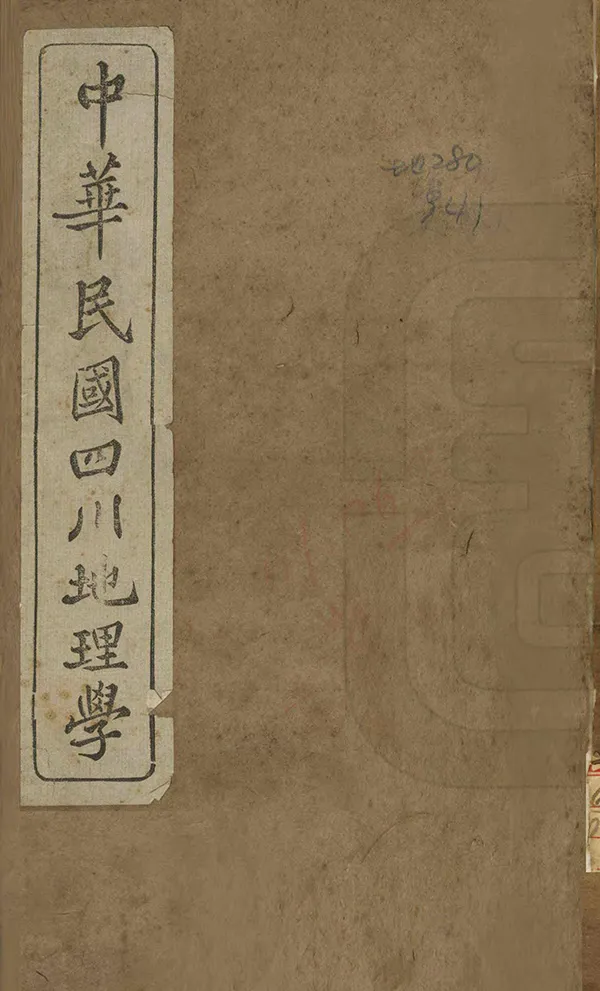 中華民國四川地理學
地280
941